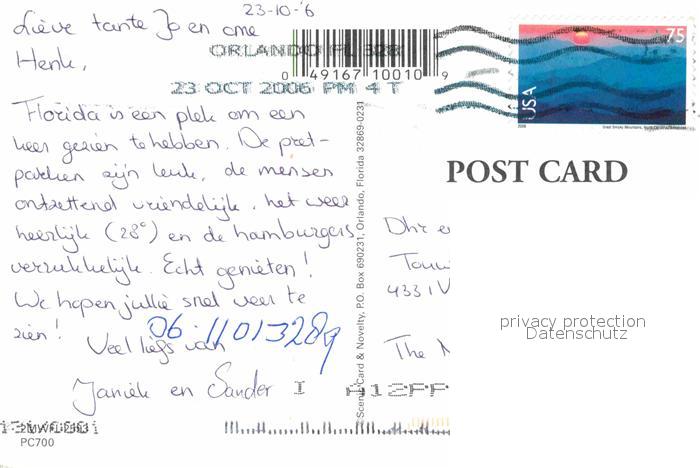 23-10-'6
Lieve tante Jo en ome
Henk,
ORLANDO FL 328
23 OCT 2006 PM 4 T
0 49167 10010 9
75
USA
Florida is een plek om een
keer gezien te hebben. De pret-
parken zijn leuk, de mensen
ontzettend vriendelijk, het weer
heerlijk (28°) en de hamburgers
verrukkelijk. Echt genieten!
We hopen jullie snel weer te
zien!
06-11013289
Veel liefs van
Janiek en Sander
2MWFL-2693
PC700
Scenic Card & Novelty, P.O. Box 690231, Orlando, Florida 32869-0231
POST CARD
Dhr e
4331V
The N
privacy protection
Datenschutz